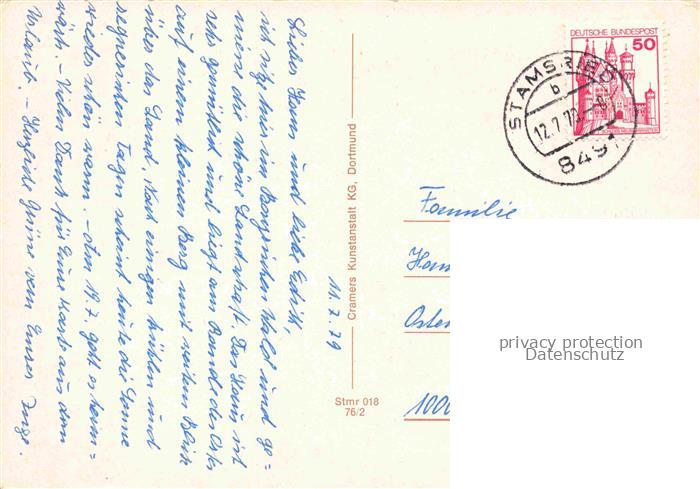 11.7.79
Lieber Hans und liebe Edith,
ich sitze hier im Bayrischen Wald und ge=
niesse die schöne Landschaft. Das Haus ist
sehr gemütlich und liegt am Rande des Ortes
auf einem kleinen Berg mit weitem Blick
über das Land. Nach einigen kühlen und
regnerischen Tagen scheint heute die Sonne
wieder schön warm. - Am 19.7. geht es heim=
wärts. - Vielen Dank für Eure Karte aus dem
Urlaub. - Herzliche Grüsse von Eurer Inge.
Cramers Kunstanstalt KG, Dortmund
Stmr 018
76/2
DEUTSCHE BUNDESPOST
50
STAMSRIED
b
12.7.79-8
8491
Familie
Han
Oste
1000
privacy protection
Datenschutz